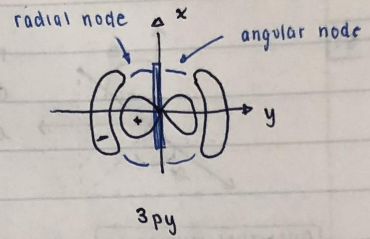 radial node
x
angular node
y
+
-
3py